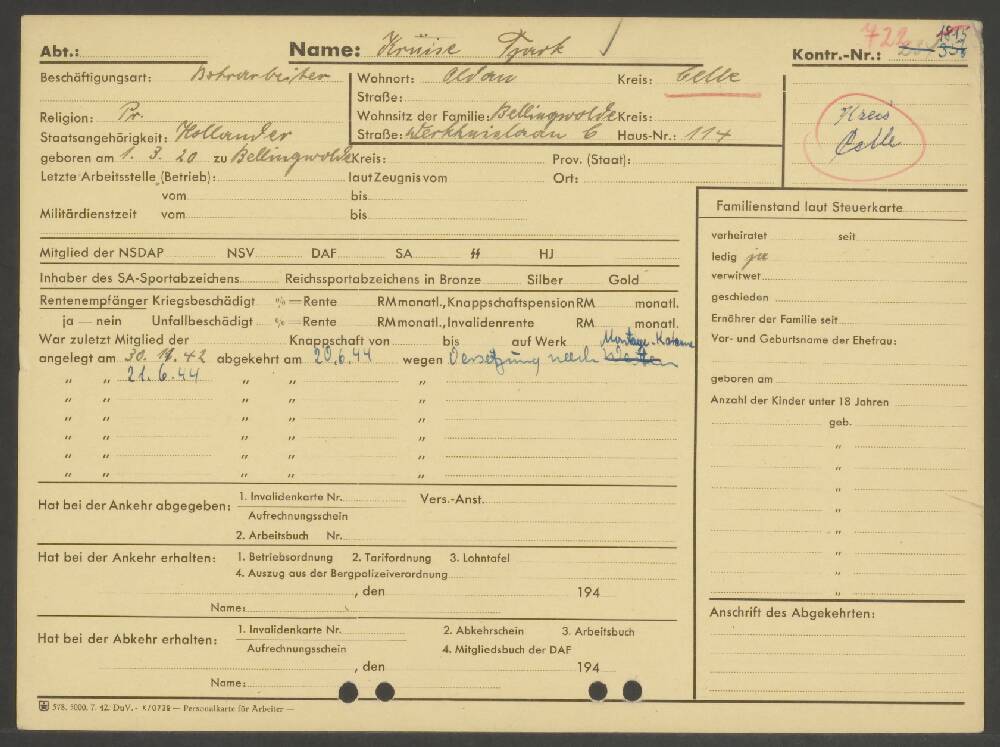 Abt.: Name: Krüise Tjark Kontr.-Nr.: 1815
722
Beschäftigungsart: Bohrarbeiter Wohnort: Oldau Kreis: Celle
Straße:
Religion: Pr. Wohnsitz der Familie: Bellingwolde Kreis: Kreis Celle
Staatsangehörigkeit: Hollander Straße: C Haus-Nr.: 114
geboren am 1. 3. 20 zu Bellingwolde Kreis: Prov. (Staat):
Letzte Arbeitsstelle (Betrieb): laut Zeugnis vom Ort:
vom bis
Militärdienstzeit vom bis
Mitglied der NSDAP NSV DAF SA SS HJ
Inhaber des SA-Sportabzeichens Reichssportabzeichens in Bronze Silber Gold
Rentenempfänger Kriegsbeschädigt %=Rente RM monatl., Knappschaftspension RM monatl.
ja — nein Unfallbeschädigt %=Rente RM monatl., Invalidenrente RM monatl.
War zuletzt Mitglied der Knappschaft von bis auf Werk Montage-Kolonne
angelegt am 30. 11. 42 abgekehrt am 20.6.44 wegen Versetzung nach
" " 21.6.44 " " "
" " " " "
" " " " "
" " " " "
" " " " "
" " " " "
Hat bei der Ankehr abgegeben: 1. Invalidenkarte Nr. Vers.-Anst.
Aufrechnungsschein
2. Arbeitsbuch Nr.
Hat bei der Ankehr erhalten: 1. Betriebsordnung 2. Tarifordnung 3. Lohntafel
4. Auszug aus der Bergpolizeiverordnung
, den 194
Name:
Hat bei der Abkehr erhalten: 1. Invalidenkarte Nr. 2. Abkehrschein 3. Arbeitsbuch
Aufrechnungsschein 4. Mitgliedsbuch der DAF
, den 194
Name:
578. 5000. 7. 42. DuV.- K/0739 — Personalkarte für Arbeiter —
Familienstand laut Steuerkarte
verheiratet seit
ledig ja
verwitwet
geschieden
Ernährer der Familie seit
Vor- und Geburtsname der Ehefrau:
geboren am
Anzahl der Kinder unter 18 Jahren
geb.
"
"
"
"
"
"
"
"
Anschrift des Abgekehrten: